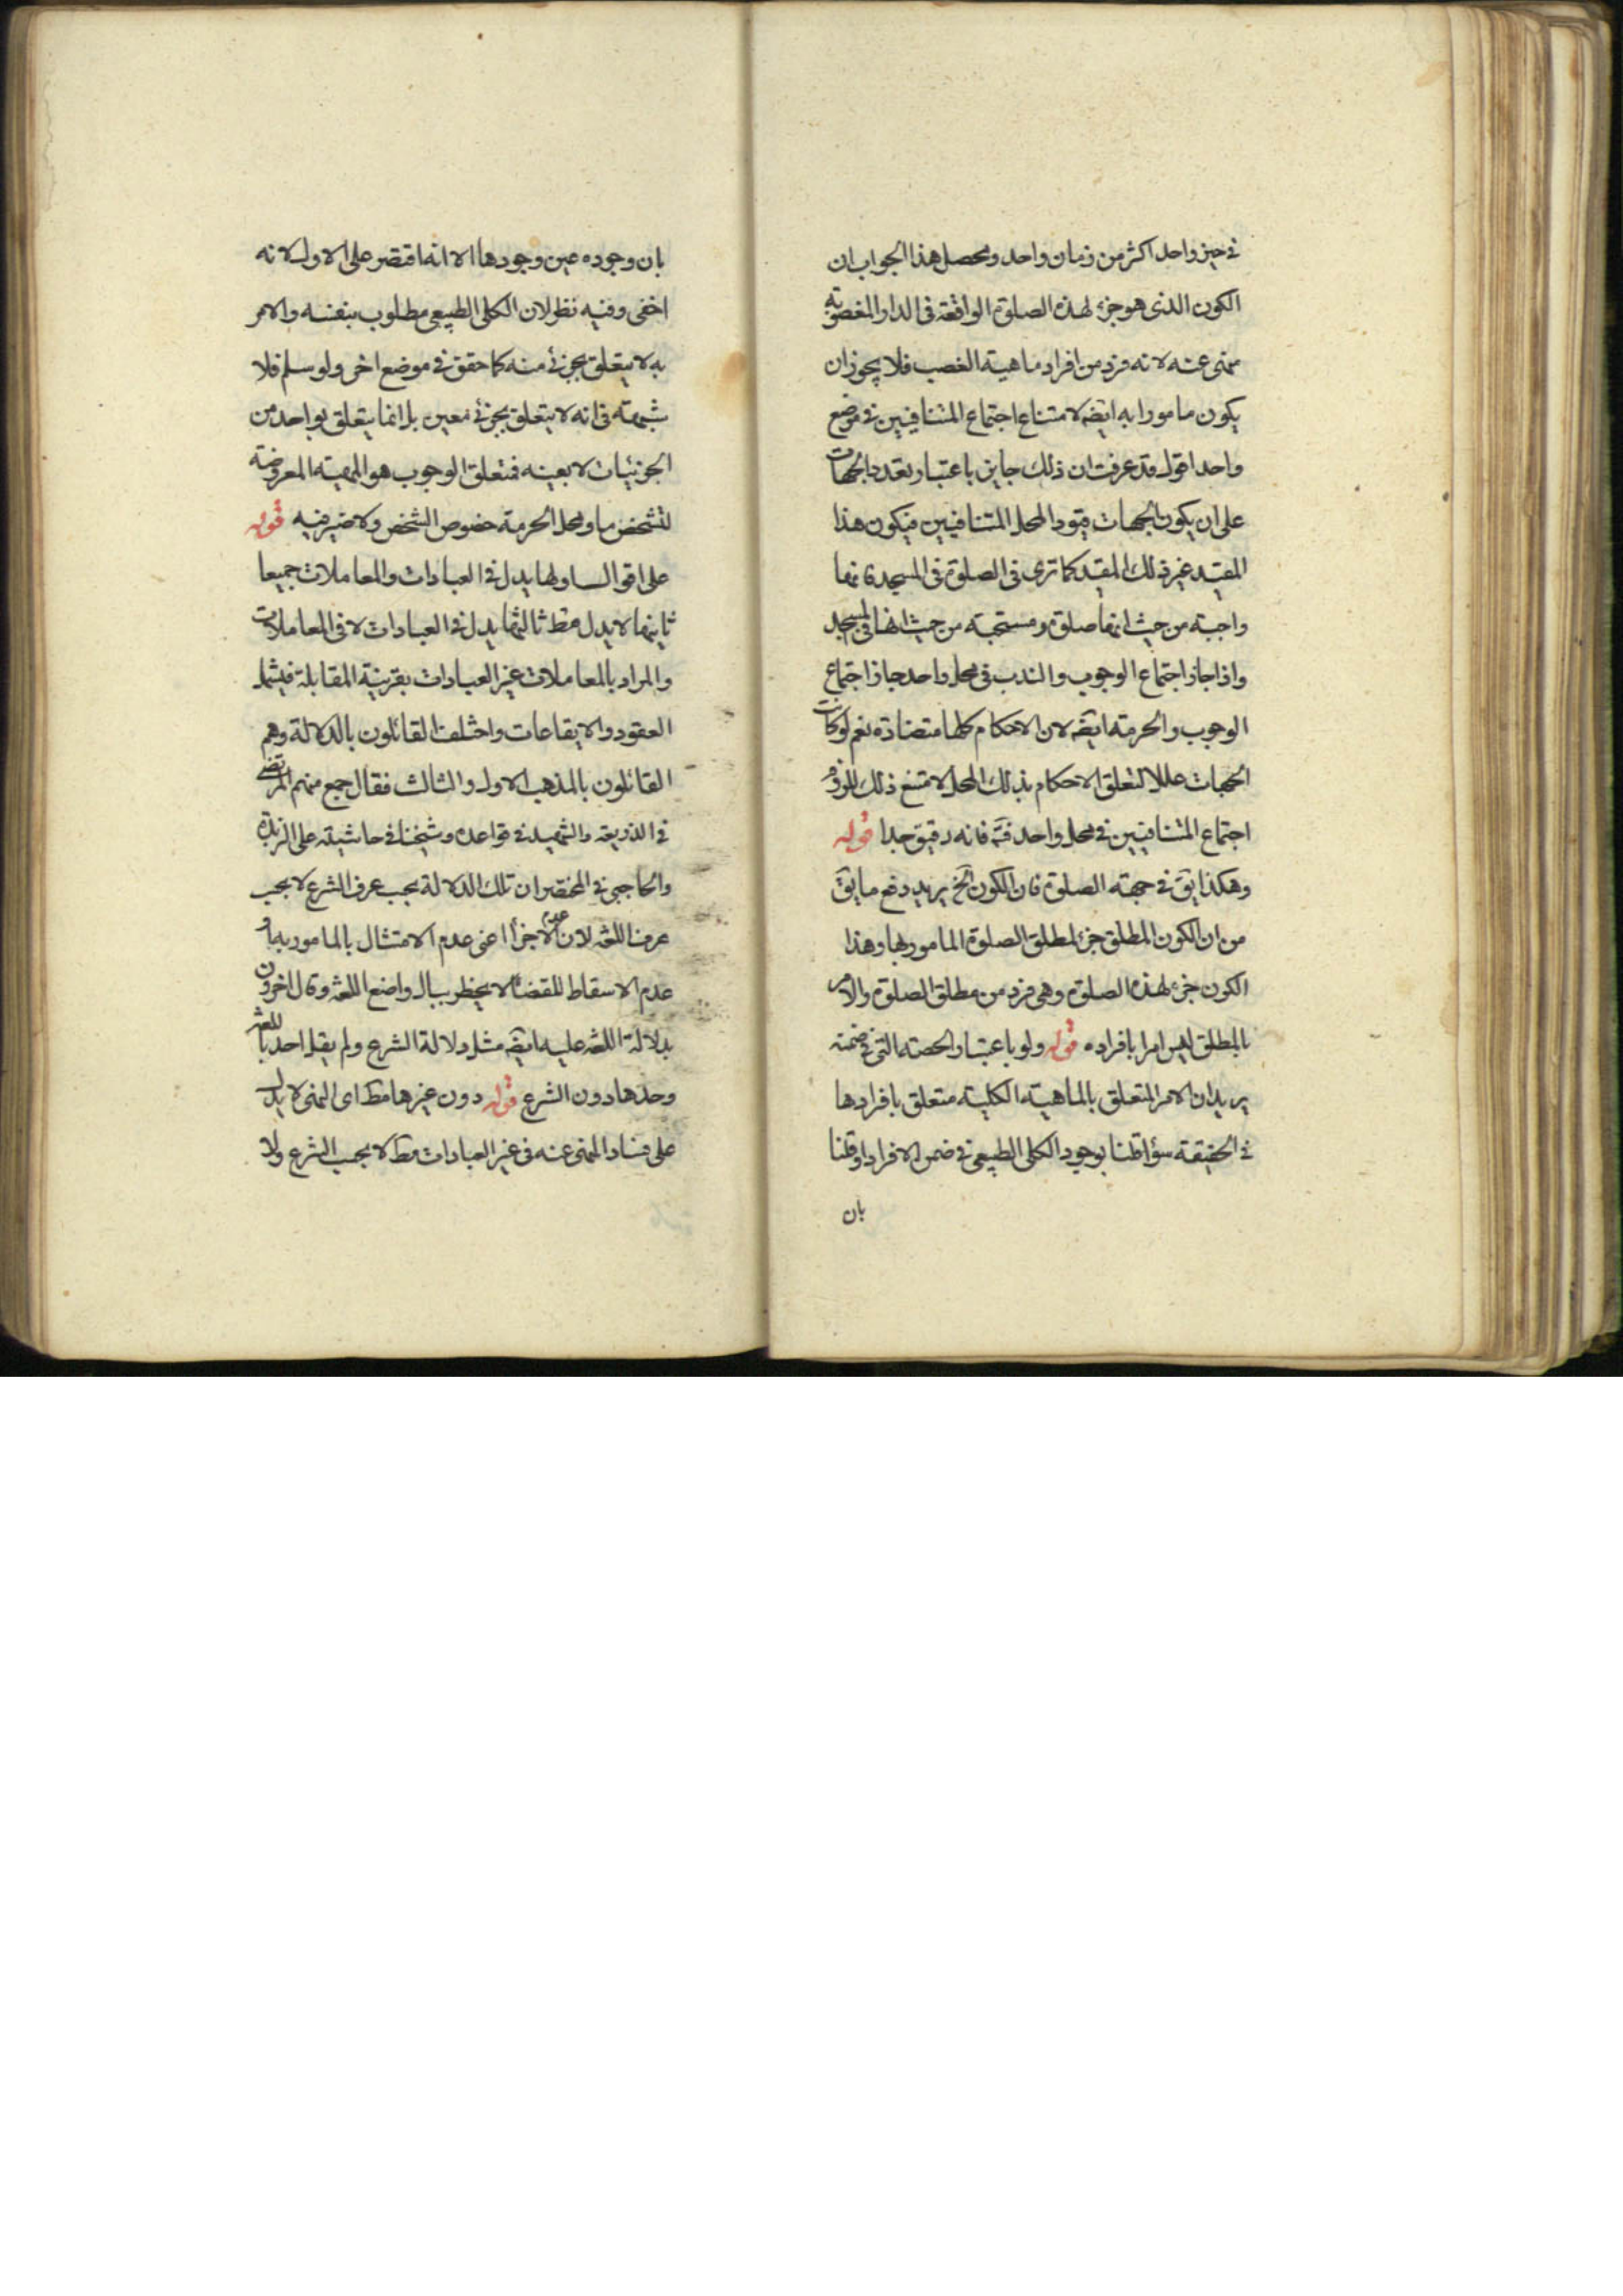 في حيز واحد اكثر من زمان واحد ومحصل هذا الجواب ان
الكون الذى هو جزء لهذه الصلوة الواقعة فى الدار المغصوبة
منهى عنه لانه فرد من افراد ماهية الغصب فلا يجوز ان
يكون مامورا به ايضه لامتناع اجتماع المتنافيين في موضع
واحد اقول قد عرفت ان ذلك جايز باعتبار تعدد الجهات
على ان يكون الجهات قيود المحل المتنافيين فيكون هذا
المقيد غير ذلك المقيد كما ترى فى الصلوة فى المسجد فانها
واجبة من حيث انها صلوة ومستحبة من حيث انها فى المسجد
واذا جاز اجتماع الوجوب والندب فى محل واحد جاز اجتماع
الوجوب والحرمة ايضه لان الاحكام كلها متضادة نعم لو كانت
الجهات عللا لتعلق الاحكام بذلك المحل لامتنع ذلك للزوم
اجتماع المتنافيين في محل واحد فتم فانه دقيق جدا قوله
وهكذا يق في جهة الصلوة فان الكون الخ يريد دفع ما يق
من ان الكون المطلق جزء لمطلق الصلوة المامور بها وهذا
الكون جزء لهذه الصلوة وهى فرد من مطلق الصلوة والامر
بالمطلق ليس امرا بافراده قوله ولو باعتبار الحصة التى في ضمنه
يريد ان الامر المتعلق بالماهية الكلية متعلق بافرادها
في الحقيقة سواء قلنا بوجود الكلى الطبيعى في ضمن الافراد او قلنا
بان
بان وجوده عين وجودها الا انه اقتصر على الاول لانه
اخفى وفيه نظر لان الكلى الطبيعى مطلوب بنفسه والامر
به لا يتعلق بجزئى منه كما حقق في موضع اخر ولو سلم فلا
شبهة فى انه لا يتعلق بجزئى معين بل انما يتعلق بواحد من
الجزئيات لا بعينه فمتعلق الوجوب هو المهية المعروضة
لتشخص ما ومحل الحرمة خصوص الشخص ولا ضير فيه قوله
على اقوال اولها يدل في العبادات والمعاملات جميعا
ثانيها لا يدل مط ثالثها يدل في العبادات لا فى المعاملات
والمراد بالمعاملات غير العبادات بقرينة المقابلة فيشمل
العقود والايقاعات واختلف القائلون بالدلالة وهم
القائلون بالمذهب الاول والثالث فقال جمع منهم المرتضى
في الذريعة والشهيد في قواعده وشيخنا في حاشيته على الزبدة
والحاجبى في المختصر ان تلك الدلالة بحسب عرف الشرع لا بحسب
عرف اللغة لان عدم الاجزاء اعنى عدم الامتثال بالمامور بها و
عدم الاسقاط للقضاء لا يخطر ببال واضع اللغة وقال اخرون
بدلالة اللغة عليه ايضه مثل دلالة الشرع ولم يقل احد باللغة
وحدها دون الشرع قوله دون غيرها مط اى النهى لا يدل
على فساد المنهى عنه فى غير العبادات مط لا بحسب الشرع ولا